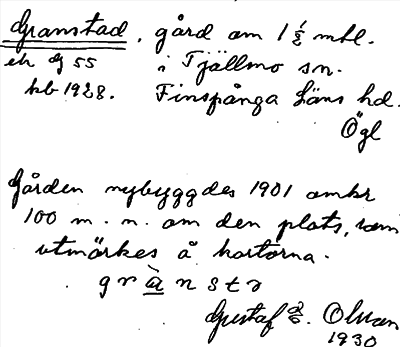 Granstad, gård om 1 1/2 mtl.
ek bl 55 i Tjällmo sn.
kb 1928. Finspånga läns hd.
Ögl
Gården nybyggdes 1901 omkr
100 m. n. om den plats, som
utmärkes å kartorna.
grànstɑ
Gustaf Olsson
1930